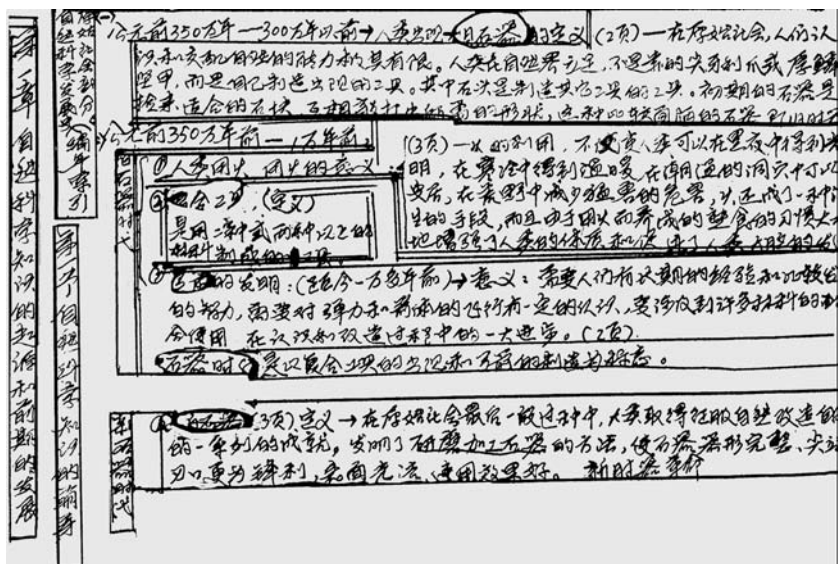 第一章自然科学知识的起源和前期的发展
第一节自然科学知识的萌芽
自然科学发展史编年索引
原始社会部分(一)
公元前350万年—300万年以前→人类出现→旧石器的定义(2页)—在原始社会,人们认
识和支配自然的能力极其有限。人类在自然界立足,不是靠的尖牙利爪或厚鳞
坚甲,而是自己制造出现的工具。其中石次是制造其它工具的工具。初期的石器是
捡来适合的石块 互相敲打
的形状,这种比较简陋的石器 即旧时
公元前350万年前—1万年前
旧石器时代
①人类用火 用火的意义
(3页)—火的利用,不仅使人类可以在黑夜中得到光
明,在寒冷中得到温暖 在潮湿的洞穴中可以
安居,在荒野中减少猛兽的危害,火还成了一种
生的手段,而且由于用火而养成的熟食的习惯大
地增强了人类的体质和促进了人类大脑的
②复合工具 (定义)
是用二种或两种以上的
材料制成的工具
③弓箭的发明:(距今一万多年前)→意义:需要人们有长期的经验和比较
的智力,需要对弹力和箭体的飞行有一定的认识,要涉及到许多材料的
合使用 在认识和改造过程中的一大进步。(2页)
石器时代 是以复合工具的出现和弓箭的制造为标志。
新石器时代
①石器(3页)定义→在原始社会最后一段过程中,人类取得征服自然改造自
的一系列的成就,发明了研磨加工石器的方法,使石器器形完整、尖
刃口更为锋利,表面光洁,使用效果好。 新时器革命